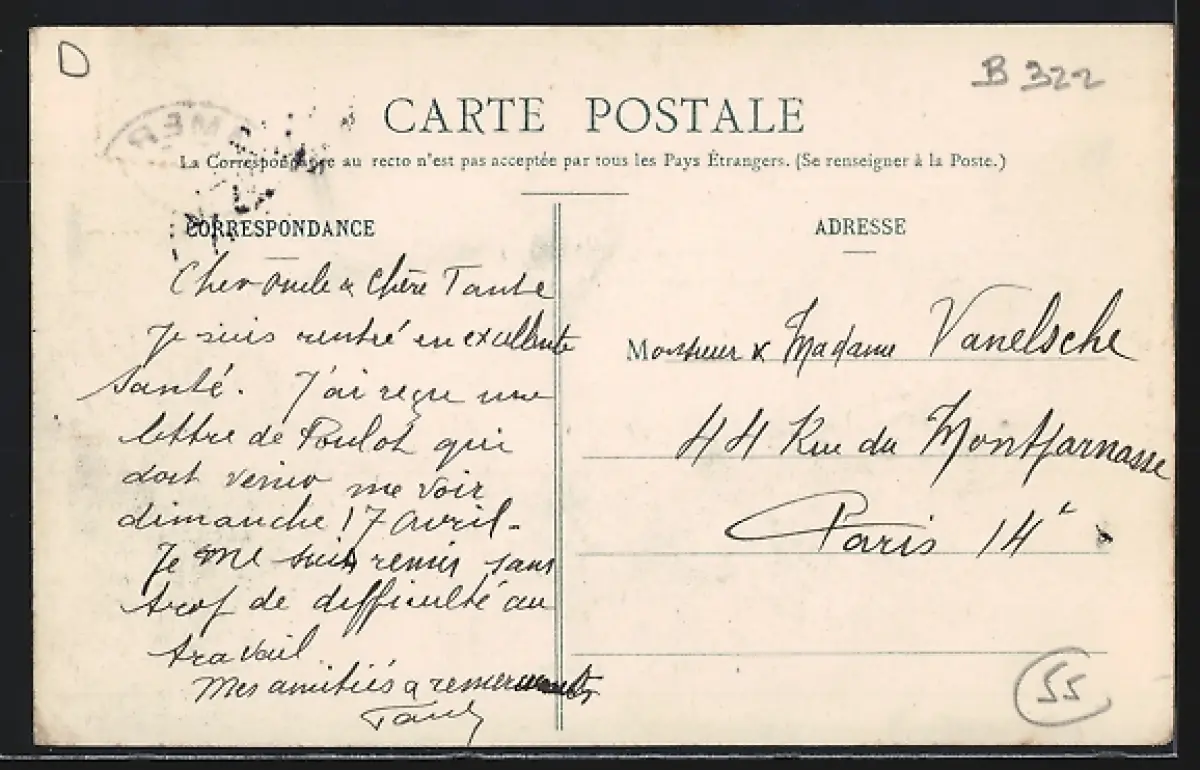 D
B 322
CARTE POSTALE
La Correspondance au recto n'est pas acceptée par tous les Pays Étrangers. (Se renseigner à la Poste.)
CORRESPONDANCE
Cher Oncle & Chère Tante
Je suis rentré en excellente
Santé. J'ai reçu une
lettre de Poulot qui
doit venir me voir
dimanche 17 avril -
Je me suis remis sans
trop de difficulté au
travail
Mes amitiés &
ADRESSE
Monsieur & Madame Vanelsche
44 Rue du Montparnasse
Paris 14
55